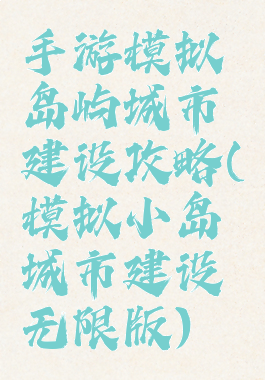 手游模拟
岛屿城市
建设攻略(
模拟小岛
城市建设
无限版)